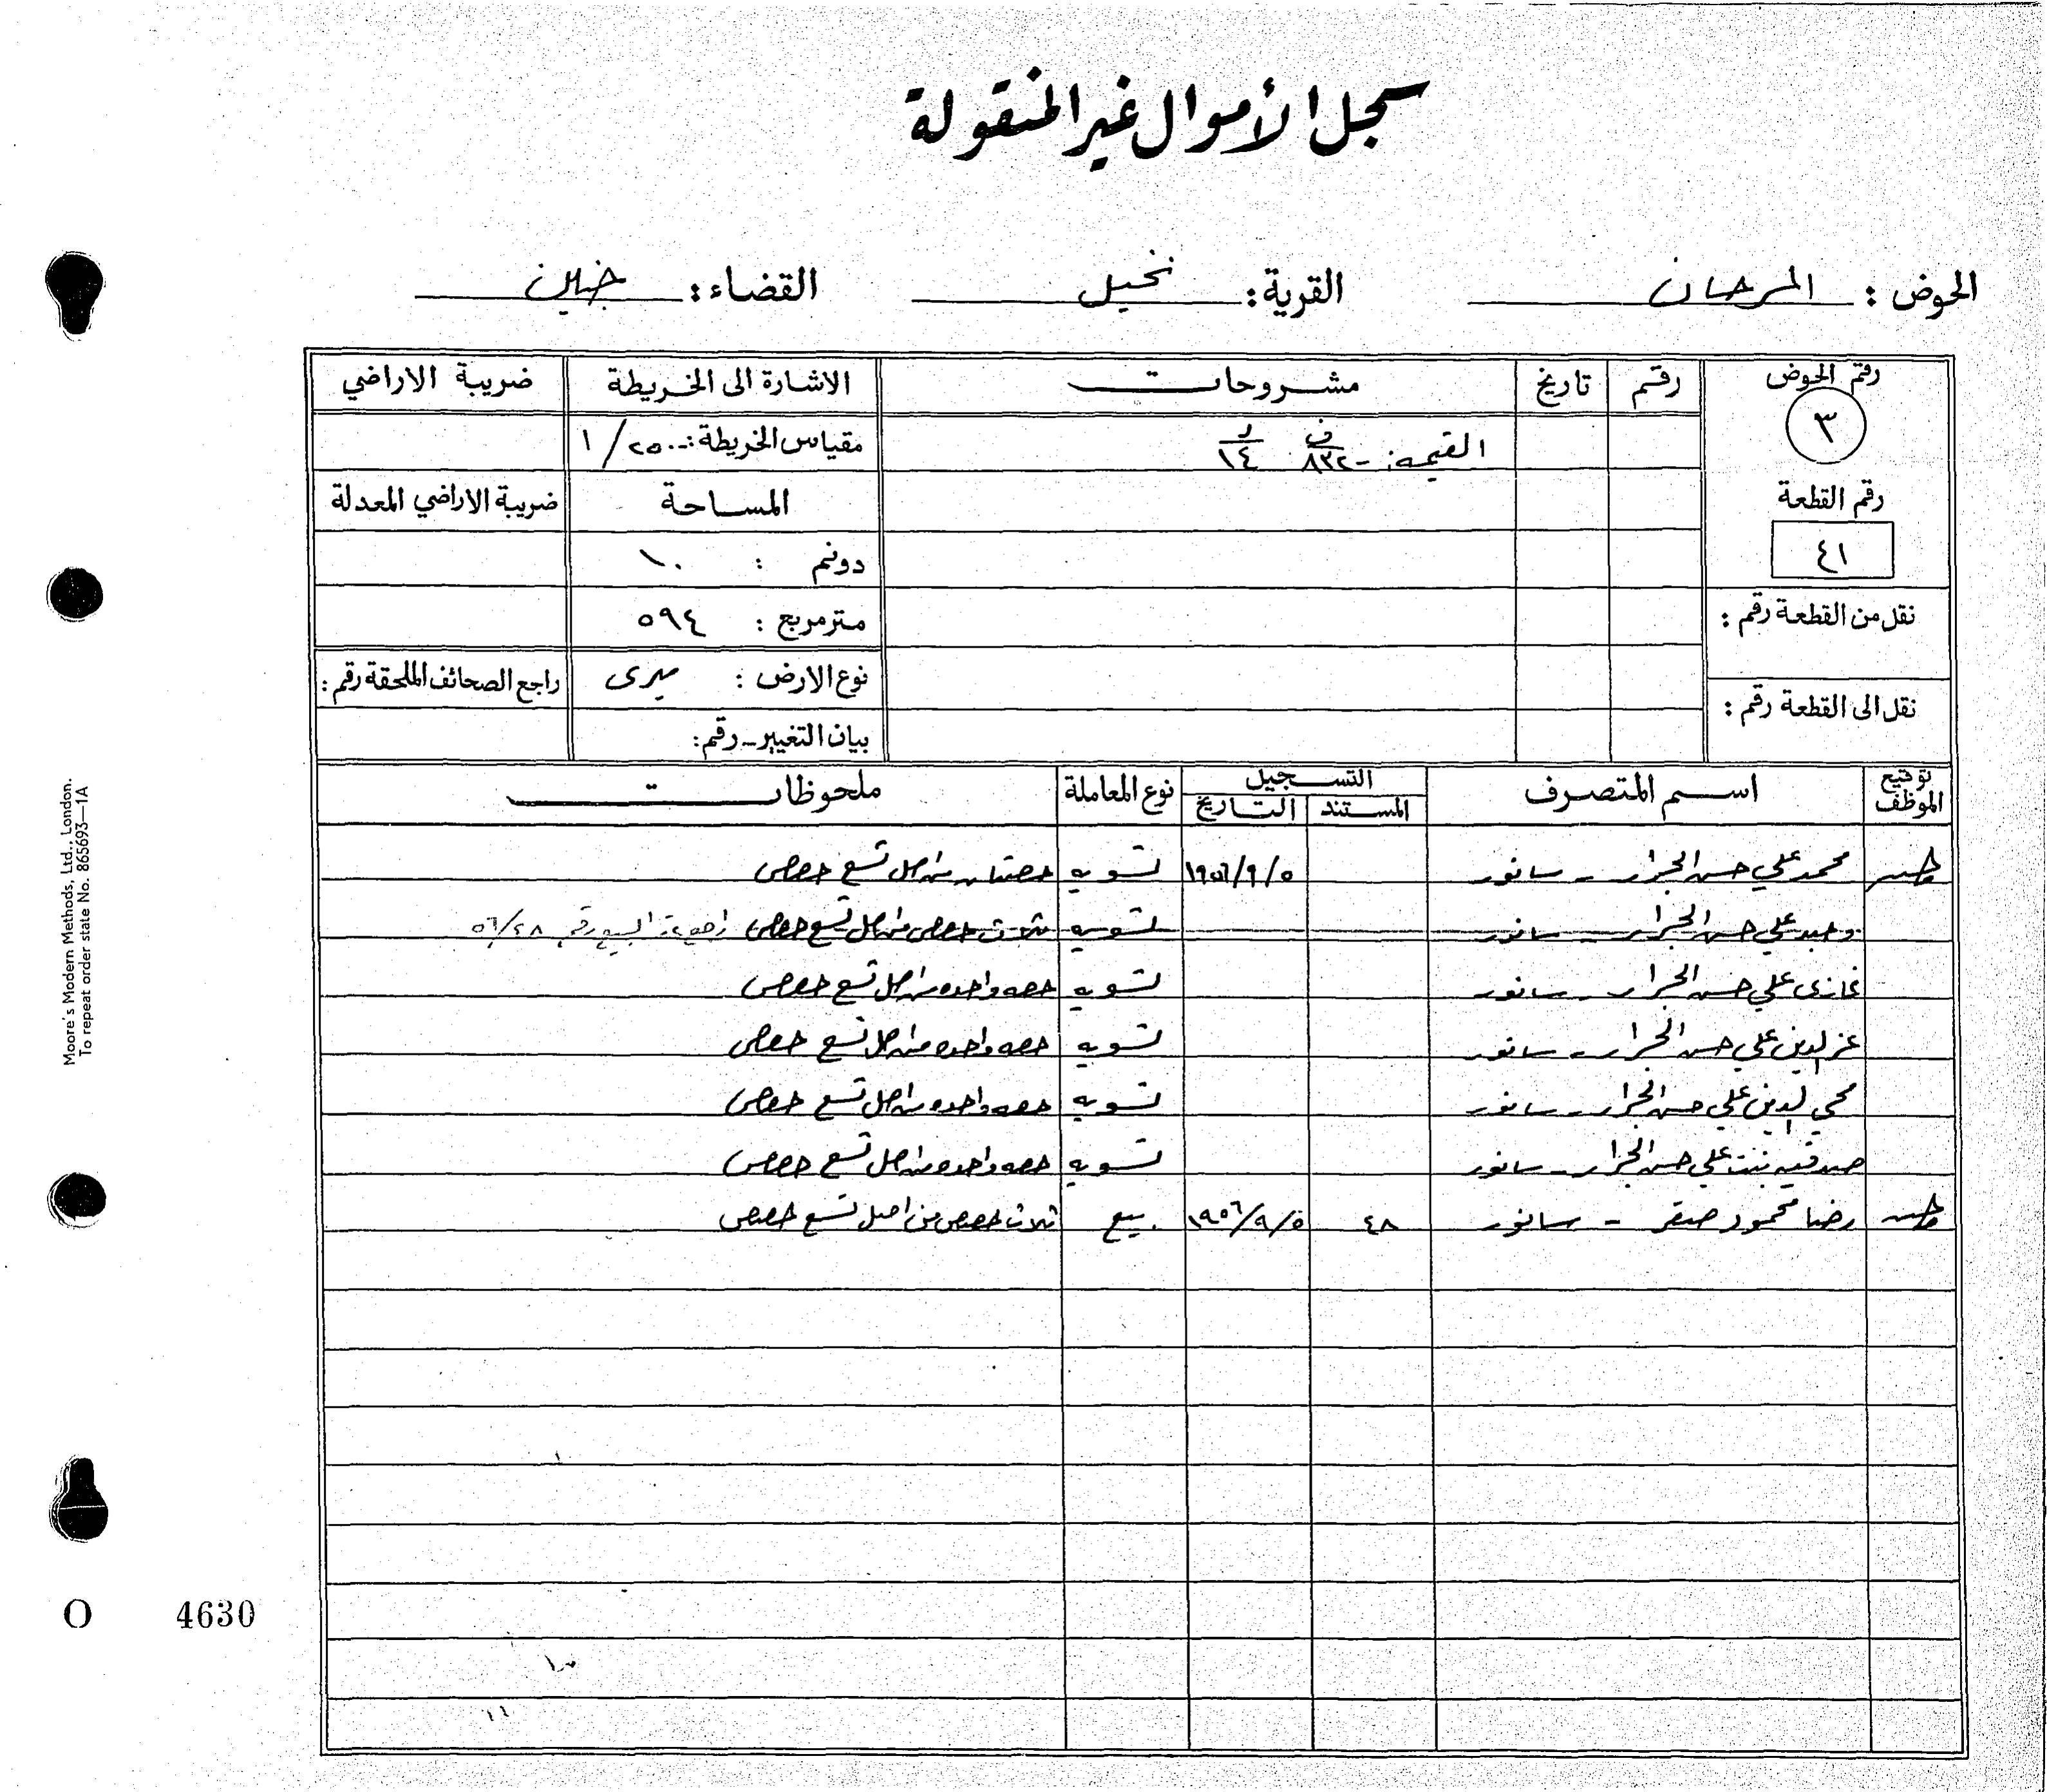 سجل الأموال غير المنقولة
الحوض : المرحان القرية : نخيل القضاء : جنين
رقم الحوض رقم تاريخ مشروحات الاشارة الى الخريطة ضريبة الاراضي
٣ القيمه :- ف ٨٣٢ د ١٤ مقياس الخريطة :- ١/٢٥٠٠
رقم القطعة المساحة ضريبة الاراضي المعدلة
٤١ دونم : ١٠
نقل من القطعة رقم : متر مربع : ٥٩٤
نوع الارض : ميرى راجع الصحائف الملحقة رقم :
نقل الى القطعة رقم : بيان التغيير - رقم :
توقيع الموظف اسم المتصرف التسجيل نوع المعاملة ملحوظات
المستند التاريخ
محمد علي حسن الجرار - سانور ١٩٥٦/٩/٥ تسويه حصتان من اصل تسع حصص
وحيد علي حسن الجرار - سانور تسويه ثلاث حصص من اصل تسع حصص راجع البيع رقم ٥٦/٤٨
غازى علي حسن الجرار - سانور تسويه حصه واحده من اصل تسع حصص
عز الدين علي حسن الجرار - سانور تسويه حصه واحده من اصل تسع حصص
محي الدين علي حسن الجرار - سانور تسويه حصه واحده من اصل تسع حصص
صدقيه بنت علي حسن الجرار - سانور تسويه حصه واحده من اصل تسع حصص
رضا محمود صقر - سانور ٤٨ ١٩٥٦/٩/٥ بيع ثلاث حصص من اصل تسع حصص
Moore's Modern Methods, Ltd., London.
To repeat order state No. 865693—1A
O 4630